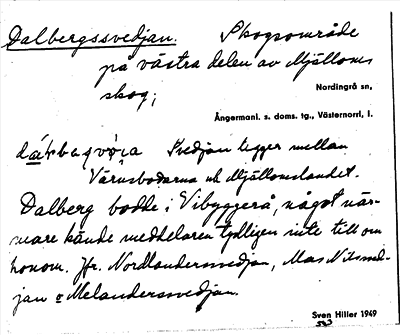 Dalbergssvedjan. Skogsområde
på västra delen av Mjälloms
skog;
Nordingrå sn,
Ångermanl. s. doms. tg., Västernorrl, l.
Svedjan ligger mellan
Värnsbodarna och Mjällomslandet.
Dalberg bodde i Vibyggerå, något när-
mare kände meddelaren tydligen inte till om
honom. Jfr. Nordlandersvedjan, Mas Nilssved-
jan o Melandersvedjan.
Sven Hiller 1949